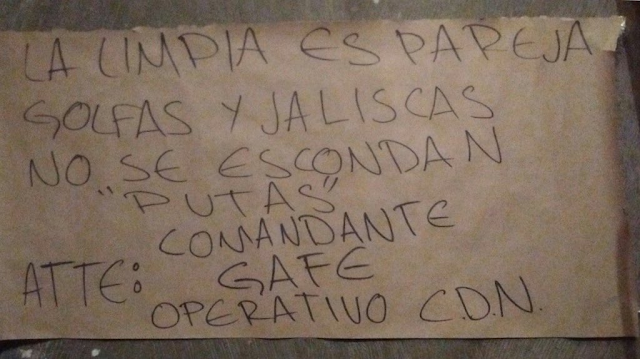 LA LIMPIA ES PAREJA
GOLFAS Y JALISCAS
NO SE ESCONDAN
"PUTAS"
COMANDANTE
ATTE: GAFE
OPERATIVO C.D.N.